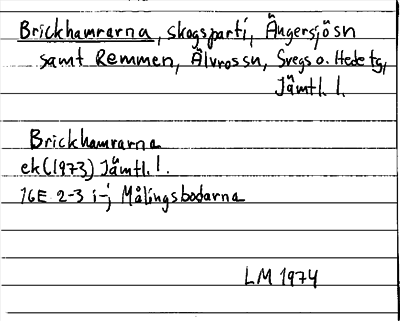 Brickhamrarna, skogsparti, Ängersjösn
samt Remmen, Älvrossn, Svegs o. Hede tg,
Jämtl. l.
Brickhamrarna
ek (1973) Jämtl. l.
16E 2-3 i-j Målingsbodarna
LM 1974